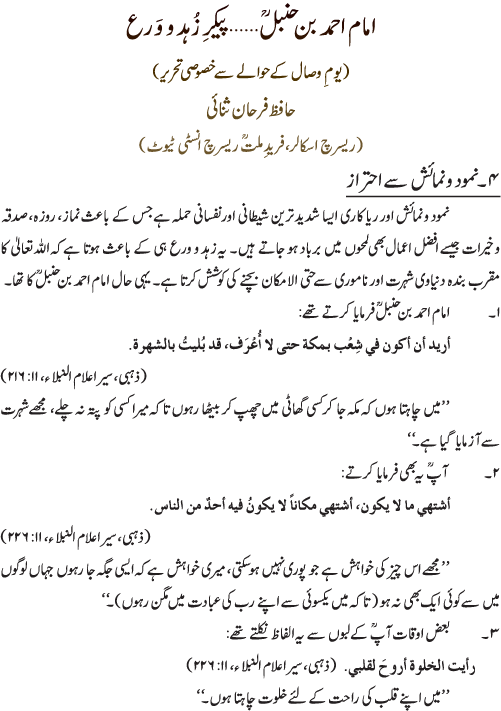 امام احمد بن حنبلؒ......پیکرِ زُہد و وَرع
(یومِ وصال کے حوالے سے خصوصی تحریر)
حافظ فرحان ثنائی
(ریسرچ اسکالر، فریدِ ملتؒ ریسرچ انسٹی ٹیوٹ)
۴۔ نمود و نمائش سے احتراز
نمود و نمائش اور ریا کاری ایسا شدید ترین شیطانی اور نفسانی حملہ ہے جس کے باعث نماز، روزہ، صدقہ
و خیرات جیسے افضل اعمال بھی لمحوں میں برباد ہو جاتے ہیں۔ یہ زہد و ورع ہی کے باعث ہوتا ہے کہ اللہ تعالیٰ کا
مقرب بندہ دنیاوی شہرت اور ناموری سے حتی الامکان بچنے کی کوشش کرتا ہے۔ یہی حال امام احمد بن حنبلؒ کا تھا۔
۱۔ امام احمد بن حنبلؒ فرمایا کرتے تھے:
أريد أن أكون في شِعْب بمكة حتى لا أُعْرَف، قد بُليتُ بالشهرة.
(ذہبی، سیر اعلام النبلاء، ۱۱: ۲۱۶)
’’میں چاہتا ہوں کہ مکہ جا کر کسی گھاٹی میں چھپ کر بیٹھا رہوں تاکہ میرا کسی کو پتہ نہ چلے، مجھے شہرت
سے آزمایا گیا ہے۔‘‘
۲۔ آپؒ یہ بھی فرمایا کرتے:
أشتهي ما لا يكون، أشتهي مكاناً لا يكونُ فيه أحدٌ من الناس.
(ذہبی، سیر اعلام النبلاء، ۱۱: ۲۲۶)
’’مجھے اس چیز کی خواہش ہے جو پوری نہیں ہوسکتی، میری خواہش ہے کہ ایسی جگہ جا رہوں جہاں لوگوں
میں سے کوئی ایک بھی نہ ہو (تاکہ میں یکسوئی سے اپنے رب کی عبادت میں مگن رہوں)۔‘‘
۳۔ بعض اوقات آپؒ کے لبوں سے یہ الفاظ نکلتے تھے:
رأيت الخلوة أروحَ لقلبي. (ذہبی، سیر اعلام النبلاء، ۱۱: ۲۲۶)
’’میں اپنے قلب کی راحت کے لئے خلوت چاہتا ہوں۔‘‘